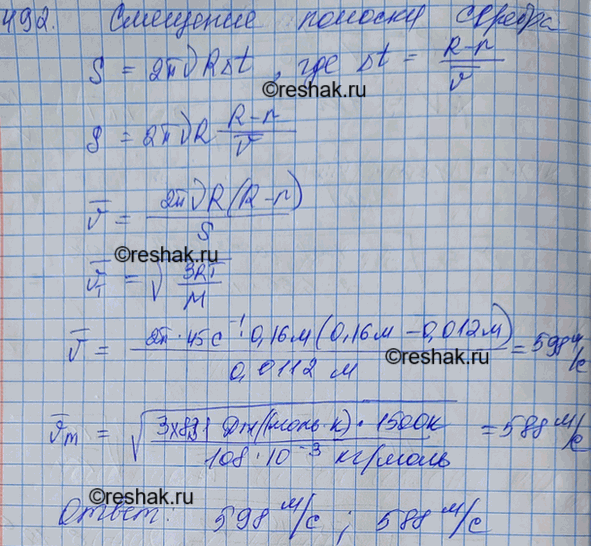 492. Смещение полоски серебра
S = 2πνRΔt, где Δt = (R-r)/v̅
©reshak.ru
S = 2πνR (R-r)/v̅
v̅ = 2πνR(R-r)/S
©reshak.ru
v̅т = √(3RT/M)
v̅ = 2π·45с⁻¹·0,16м(0,16м-0,012м)/0,0112 м = 598 м/с
©reshak.ru
v̅т = √(3×8,31 Дж/(моль·К)·1500К/108·10⁻³ кг/моль) = 588 м/с
©reshak.ru
Ответ: 598 м/с; 588 м/с